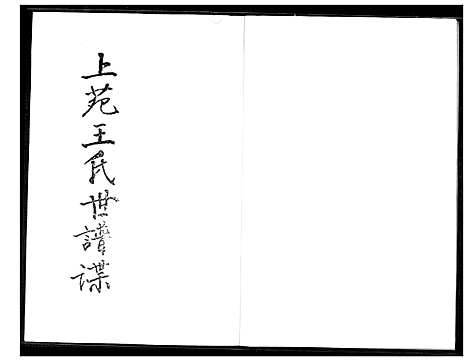 上苑王氏世譜諜